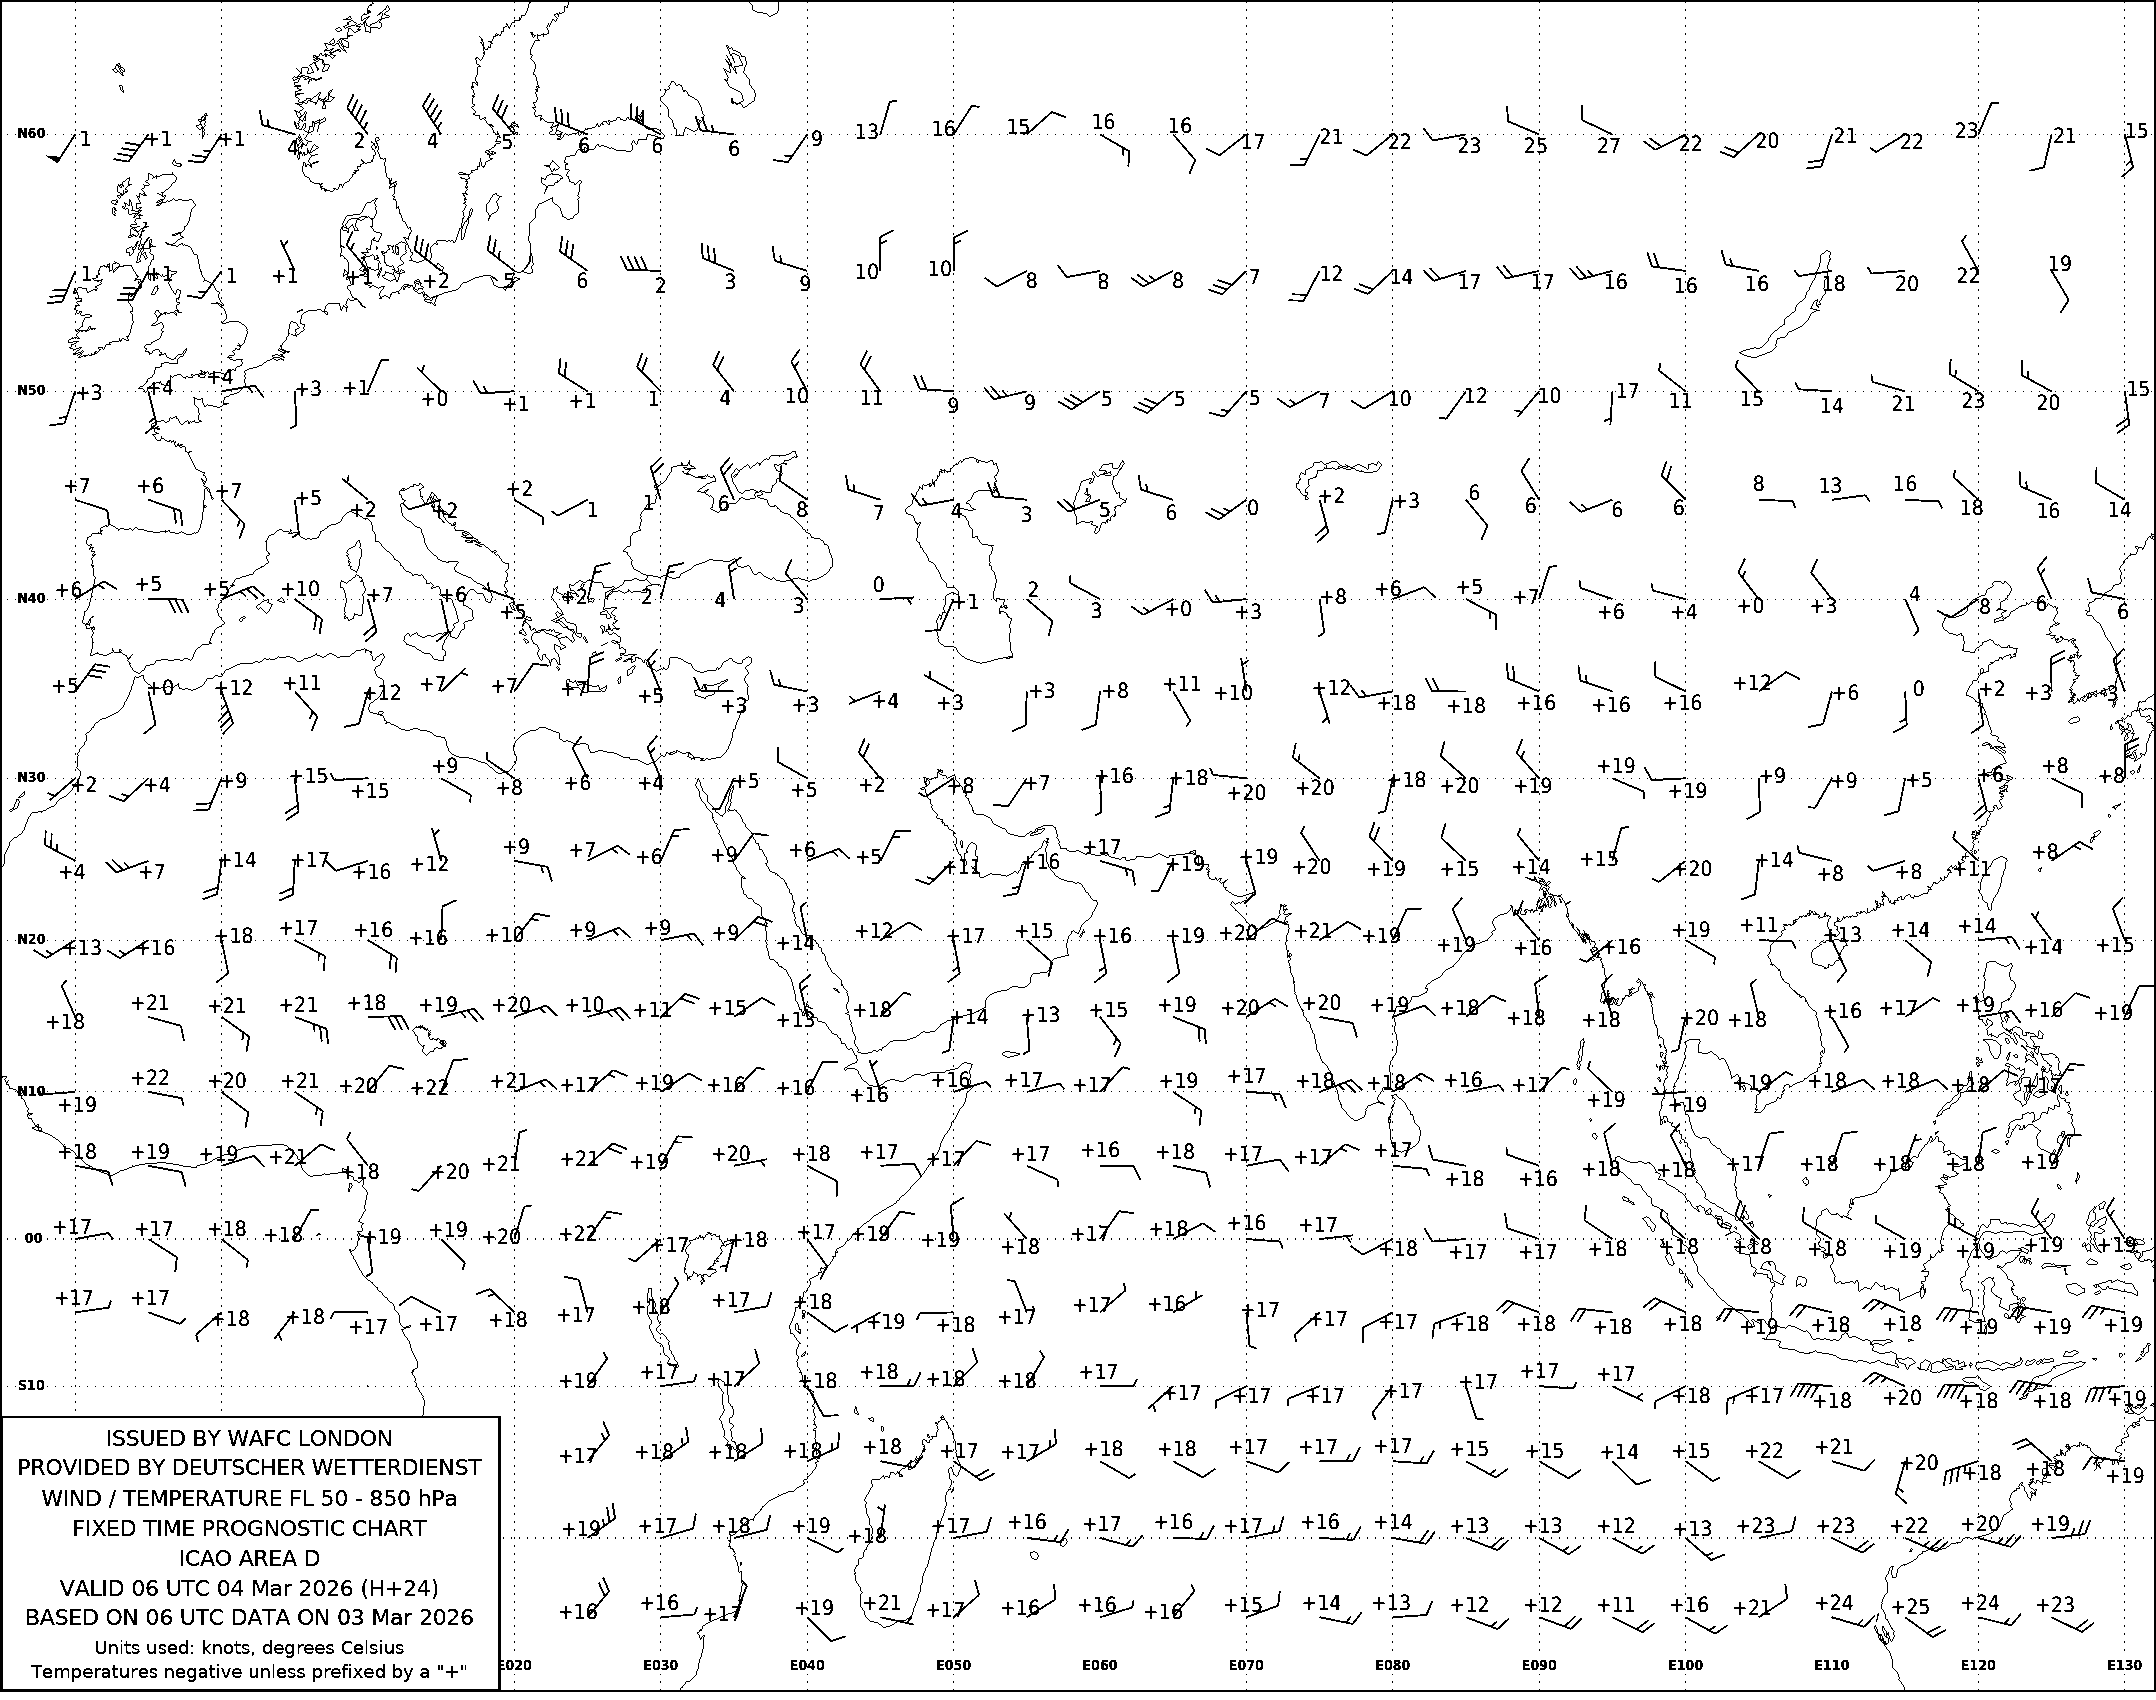 1 +1 +1 4 2 4 5 6 6 6 9 13 16 15 16 16 17 21 22 23 25 27 22 20 21 22 23 21 15
N60
1 +1 1 +1 +1 +2 5 6 2 3 9 10 10 8 8 8 7 12 14 17 17 16 16 16 18 20 22 19
N50 +3 +4 +4 +3 +1 +0 +1 +1 1 4 10 11 9 9 5 5 5 7 10 12 10 17 11 15 14 21 23 20 15
+7 +6 +7 +5 +2 +2 +2 1 1 6 8 7 4 3 5 6 0 +2 +3 6 6 6 6 8 13 16 18 16 14
N40 +6 +5 +5 +10 +7 +6 +5 +2 2 4 3 0 +1 2 3 +0 +3 +8 +6 +5 +7 +6 +4 +0 +3 4 8 6 6
+5 +0 +12 +11 +12 +7 +7 +7 +5 +3 +3 +4 +3 +3 +8 +11 +10 +12 +18 +18 +16 +16 +16 +12 +6 0 +2 +3 3
N30 +2 +4 +9 +15 +15 +9 +8 +6 +4 +5 +5 +2 +8 +7 +16 +18 +20 +20 +18 +20 +19 +19 +19 +9 +9 +5 +6 +8 +8
+4 +7 +14 +17 +16 +12 +9 +7 +6 +9 +6 +5 +11 +16 +17 +19 +19 +20 +19 +15 +14 +15 +20 +14 +8 +8 +11 +8
N20 +13 +16 +18 +17 +16 +16 +10 +9 +9 +9 +14 +12 +17 +15 +16 +19 +20 +21 +19 +19 +16 +16 +19 +11 +13 +14 +14 +14 +15
+18 +21 +21 +21 +18 +19 +20 +10 +11 +15 +15 +18 +14 +13 +15 +19 +20 +20 +19 +18 +18 +18 +20 +18 +16 +17 +19 +16 +19
N10 +19 +22 +20 +21 +20 +22 +21 +17 +19 +16 +16 +16 +16 +17 +17 +19 +17 +18 +18 +16 +17 +19 +19 +19 +18 +18 +18 +17
+18 +19 +19 +21 +18 +20 +21 +21 +19 +20 +18 +17 +17 +17 +16 +18 +17 +17 +17 +18 +16 +18 +18 +17 +18 +18 +18 +19
00 +17 +17 +18 +18 +19 +19 +20 +22 +17 +18 +17 +19 +19 +18 +17 +18 +16 +17 +18 +17 +17 +18 +18 +18 +18 +19 +19 +19 +19
+17 +17 +18 +18 +17 +17 +18 +17 +18 +17 +18 +19 +18 +17 +17 +16 +17 +17 +17 +18 +18 +18 +18 +19 +18 +18 +19 +19 +19
S10 +19 +17 +17 +18 +18 +18 +18 +17 +17 +17 +17 +17 +17 +17 +17 +18 +17 +18 +20 +18 +18 +19
+17 +18 +18 +18 +18 +17 +17 +18 +18 +17 +17 +17 +15 +15 +14 +15 +22 +21 +20 +18 +18 +19
+19 +17 +18 +19 +18 +17 +16 +17 +16 +17 +16 +14 +13 +13 +12 +13 +23 +23 +22 +20 +19
+16 +16 +17 +19 +21 +17 +16 +16 +16 +15 +14 +13 +12 +12 +11 +16 +21 +24 +25 +24 +23
ISSUED BY WAFC LONDON
PROVIDED BY DEUTSCHER WETTERDIENST
WIND / TEMPERATURE FL 50 - 850 hPa
FIXED TIME PROGNOSTIC CHART
ICAO AREA D
VALID 06 UTC 04 Mar 2026 (H+24)
BASED ON 06 UTC DATA ON 03 Mar 2026
Units used: knots, degrees Celsius
Temperatures negative unless prefixed by a "+"
E020 E030 E040 E050 E060 E070 E080 E090 E100 E110 E120 E130